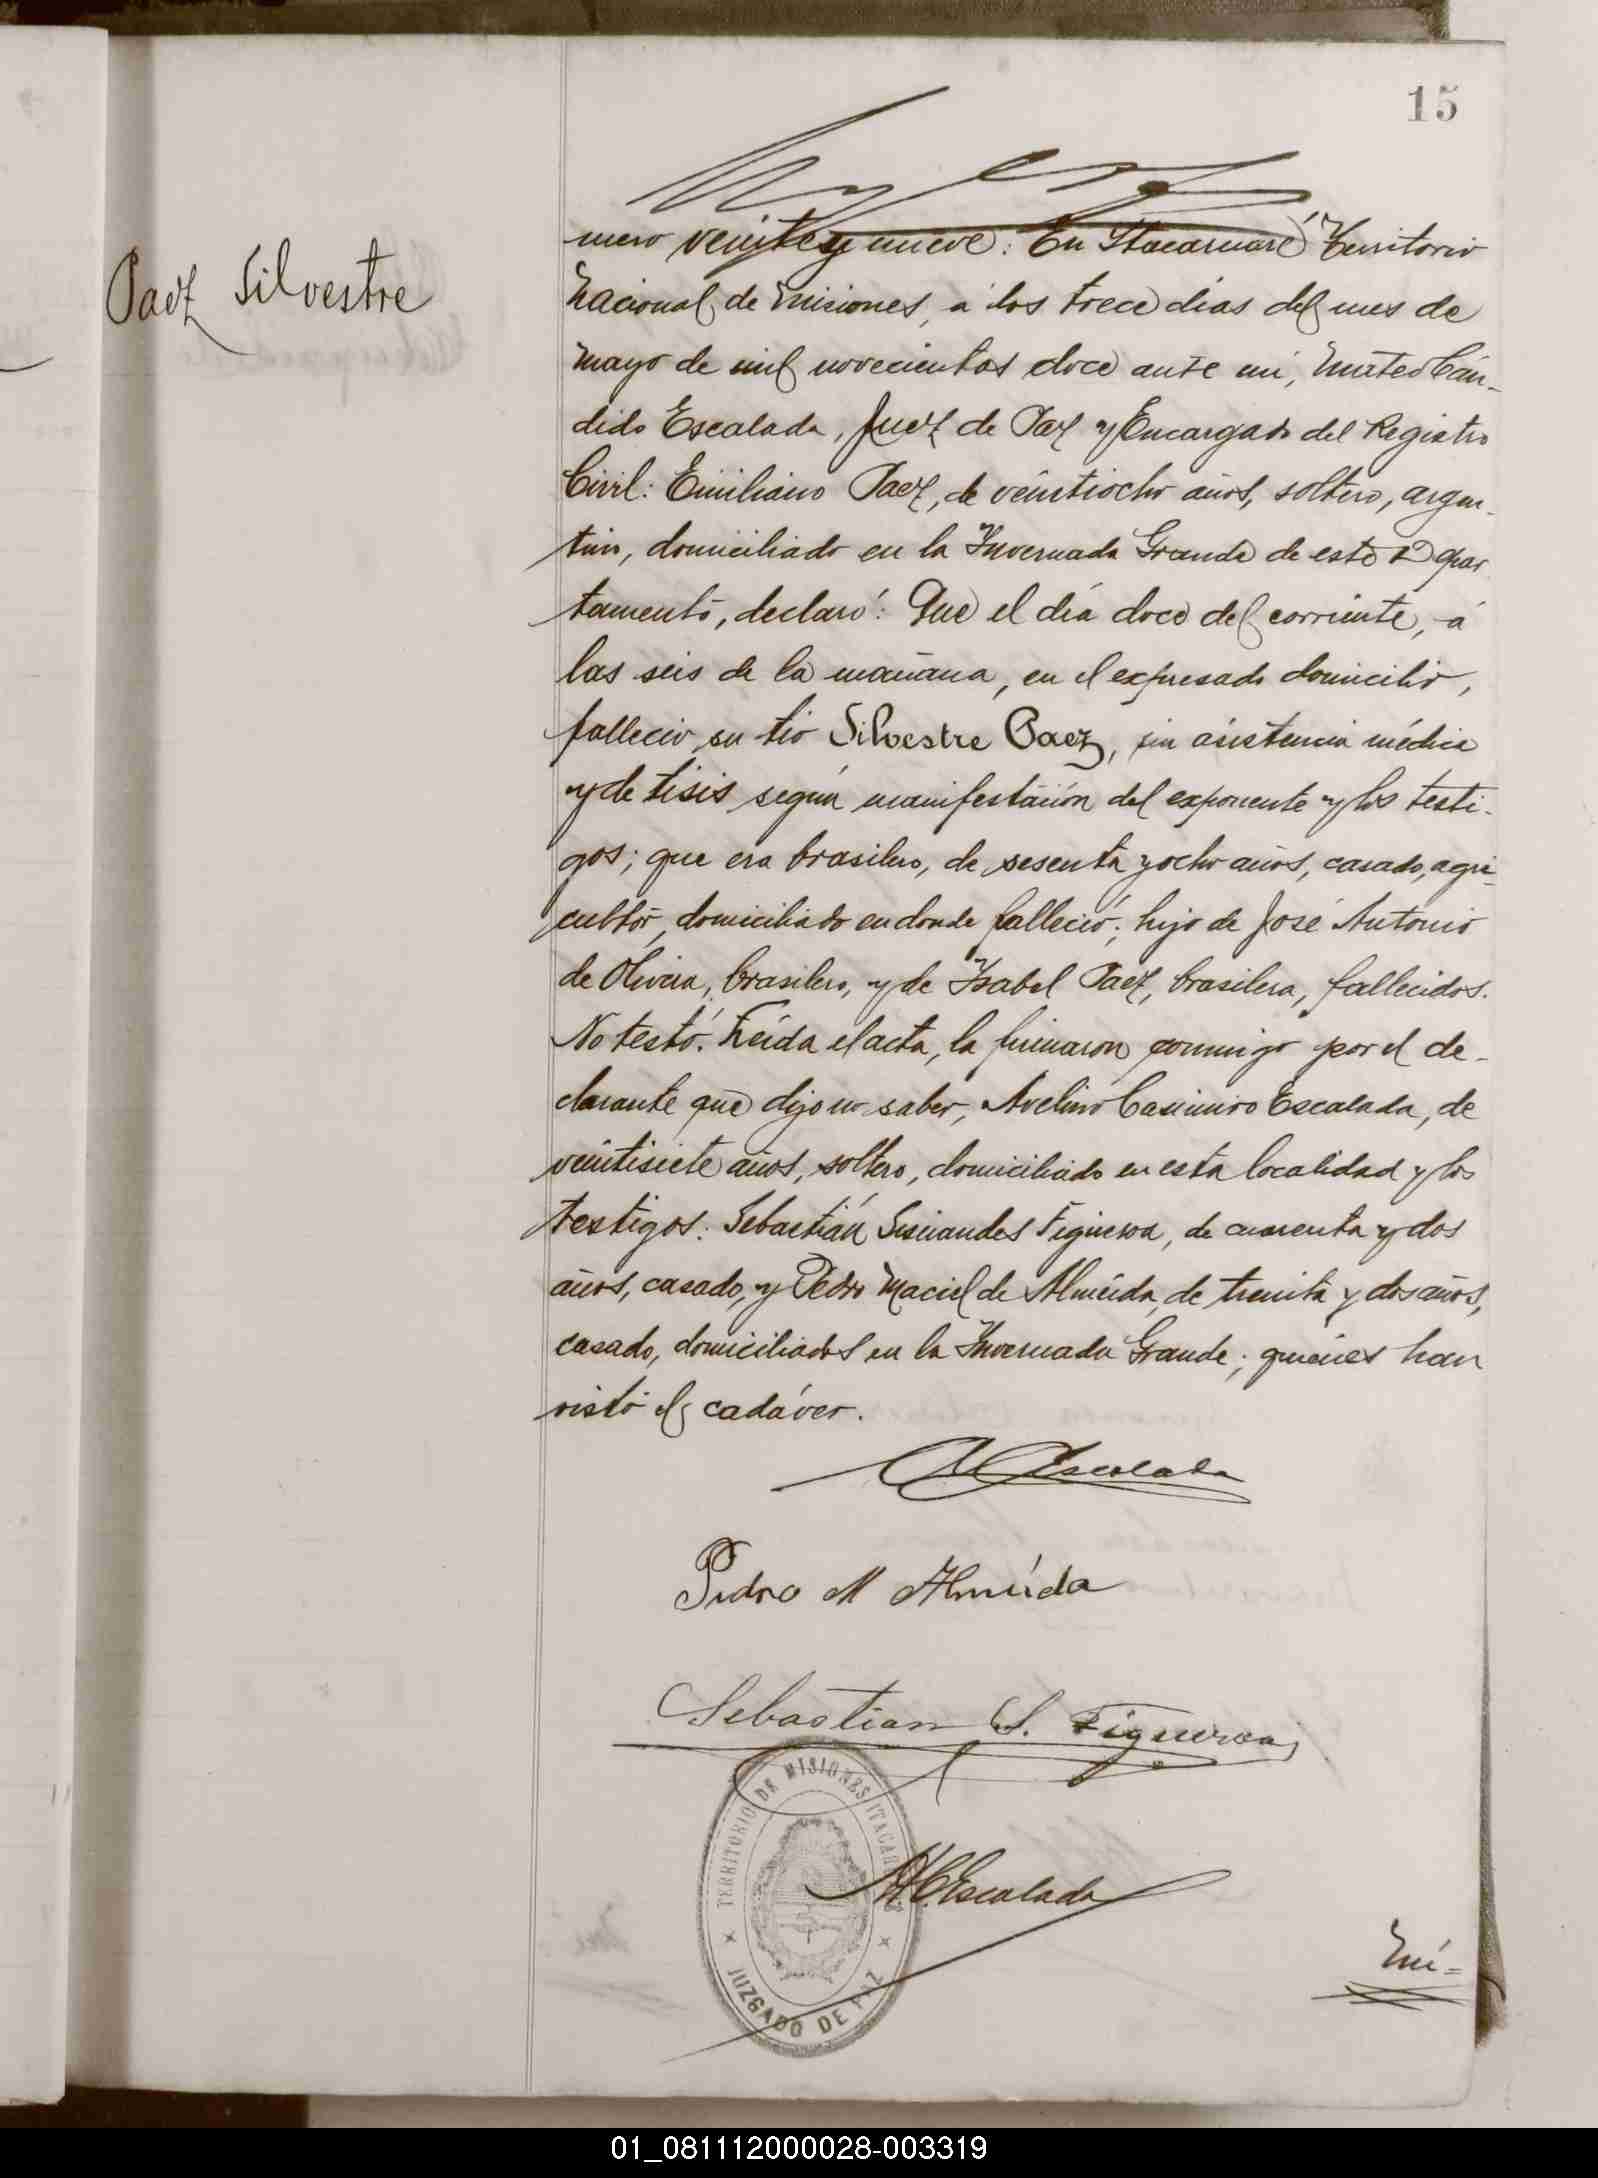 15
Paez Silvestre
mero veinte y nueve: En Itacaruaré Territorio
Nacional de Misiones, á los trece dias del mes de
Mayo de mil novecientos doce ante mi, Mateo Cán-
dido Escalada, Juez de Paz y Encargado del Registro
Civil: Emiliano Paez, de veintiocho años, soltero, argen-
tino, domiciliado en la Invernada Grande de este Depar
tamento, declaró: Que el día doce del corriente, á
las seis de la mañana, en el expresado domicilio,
falleció su tio Silvestre Paez, sin asistencia médica
y de tisis según manifestación del exponente y los testi-
gos; que era brasilero, de sesenta y ocho años, casado, agri-
cultor, domiciliado en donde falleció; hijo de José Antonio
de Oliveira, brasilero, y de Isabel Paez, brasilera, fallecidos.
No testó. Leída el acta, la firmaron conmigo por el de-
clarante que dijo no saber, Avelino Casimiro Escalada, de
veintisiete años, soltero, domiciliado en esta localidad y los
testigos: Sebastián Sisnandes Figueroa, de cuarenta y dos
años, casado, y Pedro Maciel de Almeida, de treinta y dos años,
casado, domiciliados en la Invernada Grande; quienes han
visto el cadáver.
A C Escalada
Pedro M Almeida
Sebastian S. Figueroa
TERRITORIO DE MISIONES ITACARUARÉ
JUZGADO DE PAZ
M.C. Escalada
Nú=
01_081112000028-003319